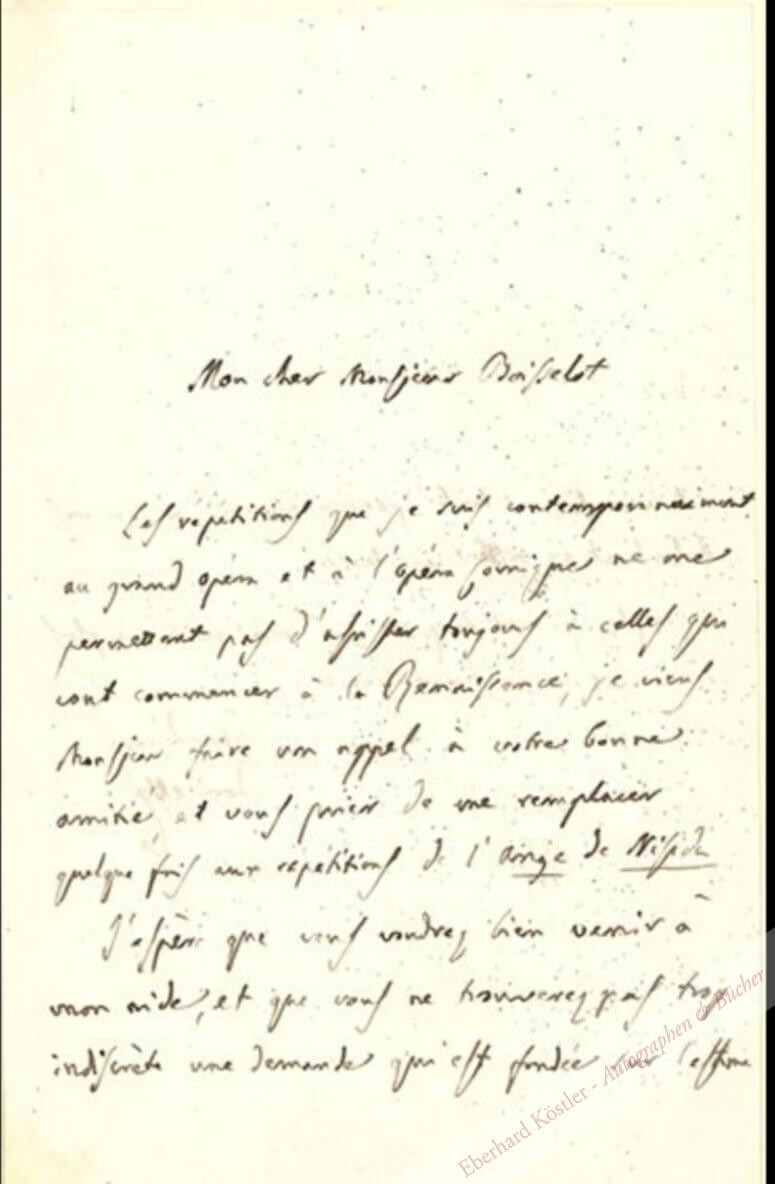 Mon cher Monsieur Boisselot
Les répétitions que je suis contemporainement
au grand opéra et à l'opéra comique ne me
permettent pas d'assister toujours à celles qui
vont commencer à la Renaissance, je viens
Monsieur faire un appel à votre bonne
amitié, et vous prier de me remplacer
quelque fois aux répétitions de l'Ange de Nisida
J'espère que vous voudrez bien venir à
mon aide, et que vous ne trouverez pas trop
indiscrète une demande qui est fondée sur l'estime
Eberhard Köstler - Autographen & Bücher